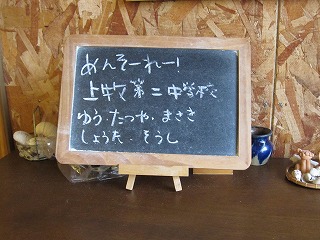 めんそーれー!
上牧第二中学校
ゆう・たつや・まさき
しょうた・そうし